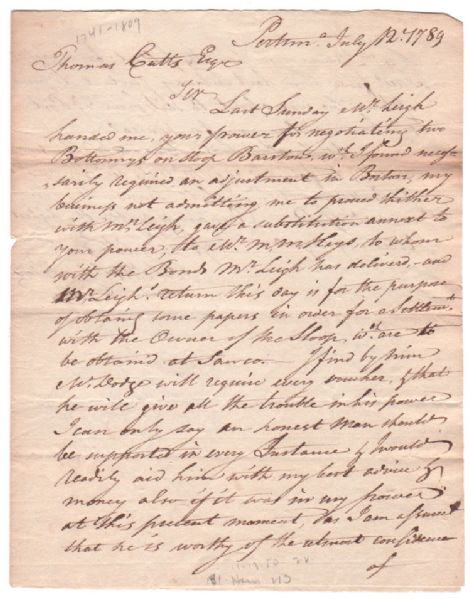 1741-1809
Portsmo July 12. 1789
Thomas Cutts Esqr
Sir
Last Sunday Mr. Leigh
handed me, your power for negotiating two
Bottomrys on Sloop Barstow, wh. I found neces-
sarily required an adjustment in Boston, my
business not admitting me to proceed thither
with Mr Leigh, gave a substitution annext to
your power, to Mr. to whom
with the Bonds Mr Leigh has deliverd, and
Mr Leigh's return this day is for the purpose
of obtaing some papers in order for a Settlemt
with the Owner of the Sloop, wh. are to
be obtained at Saco. I find by him
Mr. Dodge will require every voucher, & that
he will give all the trouble in his power
I can only say an honest Man should
be supported in every Instance & I would
readily aid him with my best advice &
money also if it was in my power
at this present moment, as I am assured
that he is worthy of the utmost confidence
of